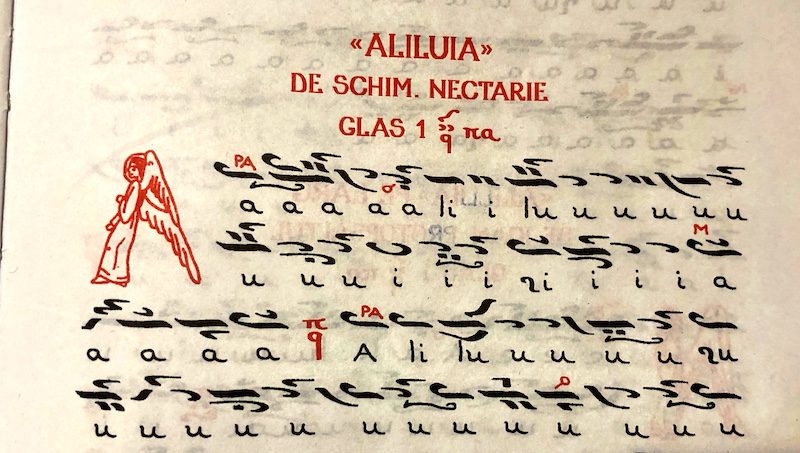 «ALILUIA»
DE SCHIM. NECTARIE
GLAS 1 πa
PA
a a a a a li i lu u u u u u
M
u u u i i i ɿi i i i a
π PA
a a a a A li lu u u u u u ɿu
u u u u u u u u u u u u u